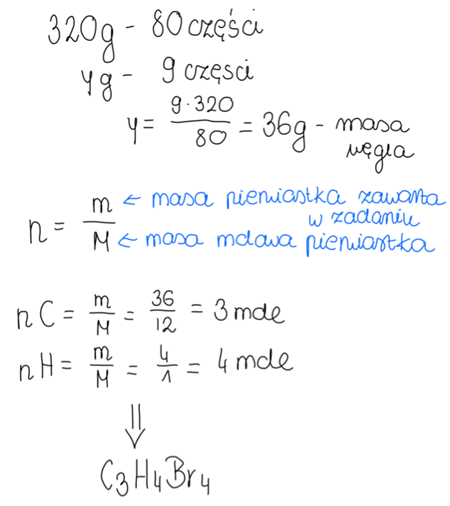 320g - 80 części
yg - 9 części
y = 9·320 / 80 = 36g - masa
węgla
n = m / M
← masa pierwiastka zawarta
w zadaniu
← masa molowa pierwiastka
nC = m / M = 36 / 12 = 3 mole
nH = m / M = 4 / 1 = 4 mole
⇓
C₃H₄Br₄